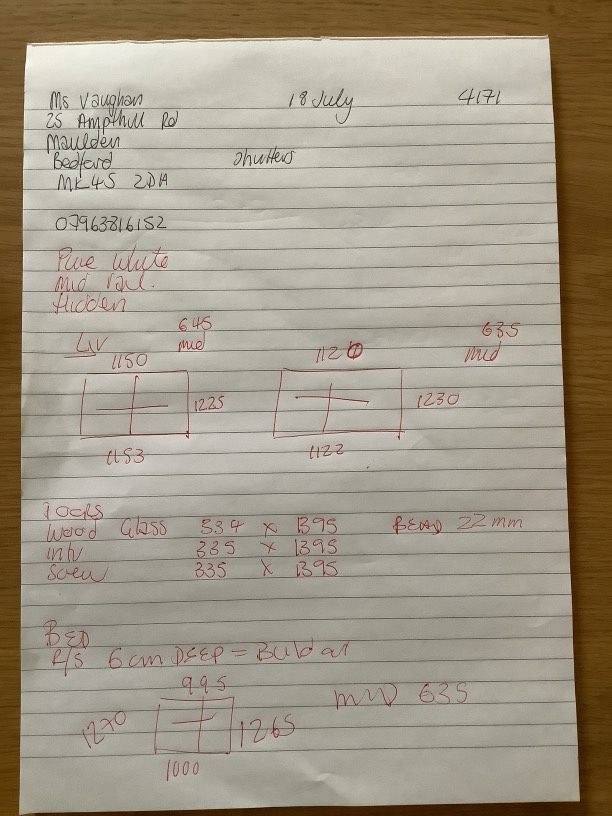 Ms Vaughan 18 July 4171
25 Ampthill Rd
Maulden
Bedford Shutters
MK45 2DH
07963816152
Pure White
mid rail.
Hidden
LIV 645 mid 635 mid
1150 1120
1225 1230
1153 1122
Wood Glass 334 x 1395 BEAD 22mm
335 x 1395
335 x 1395
BED
R/S 6cm DEEP = Build out
995 MID 635
1270 1265
1000